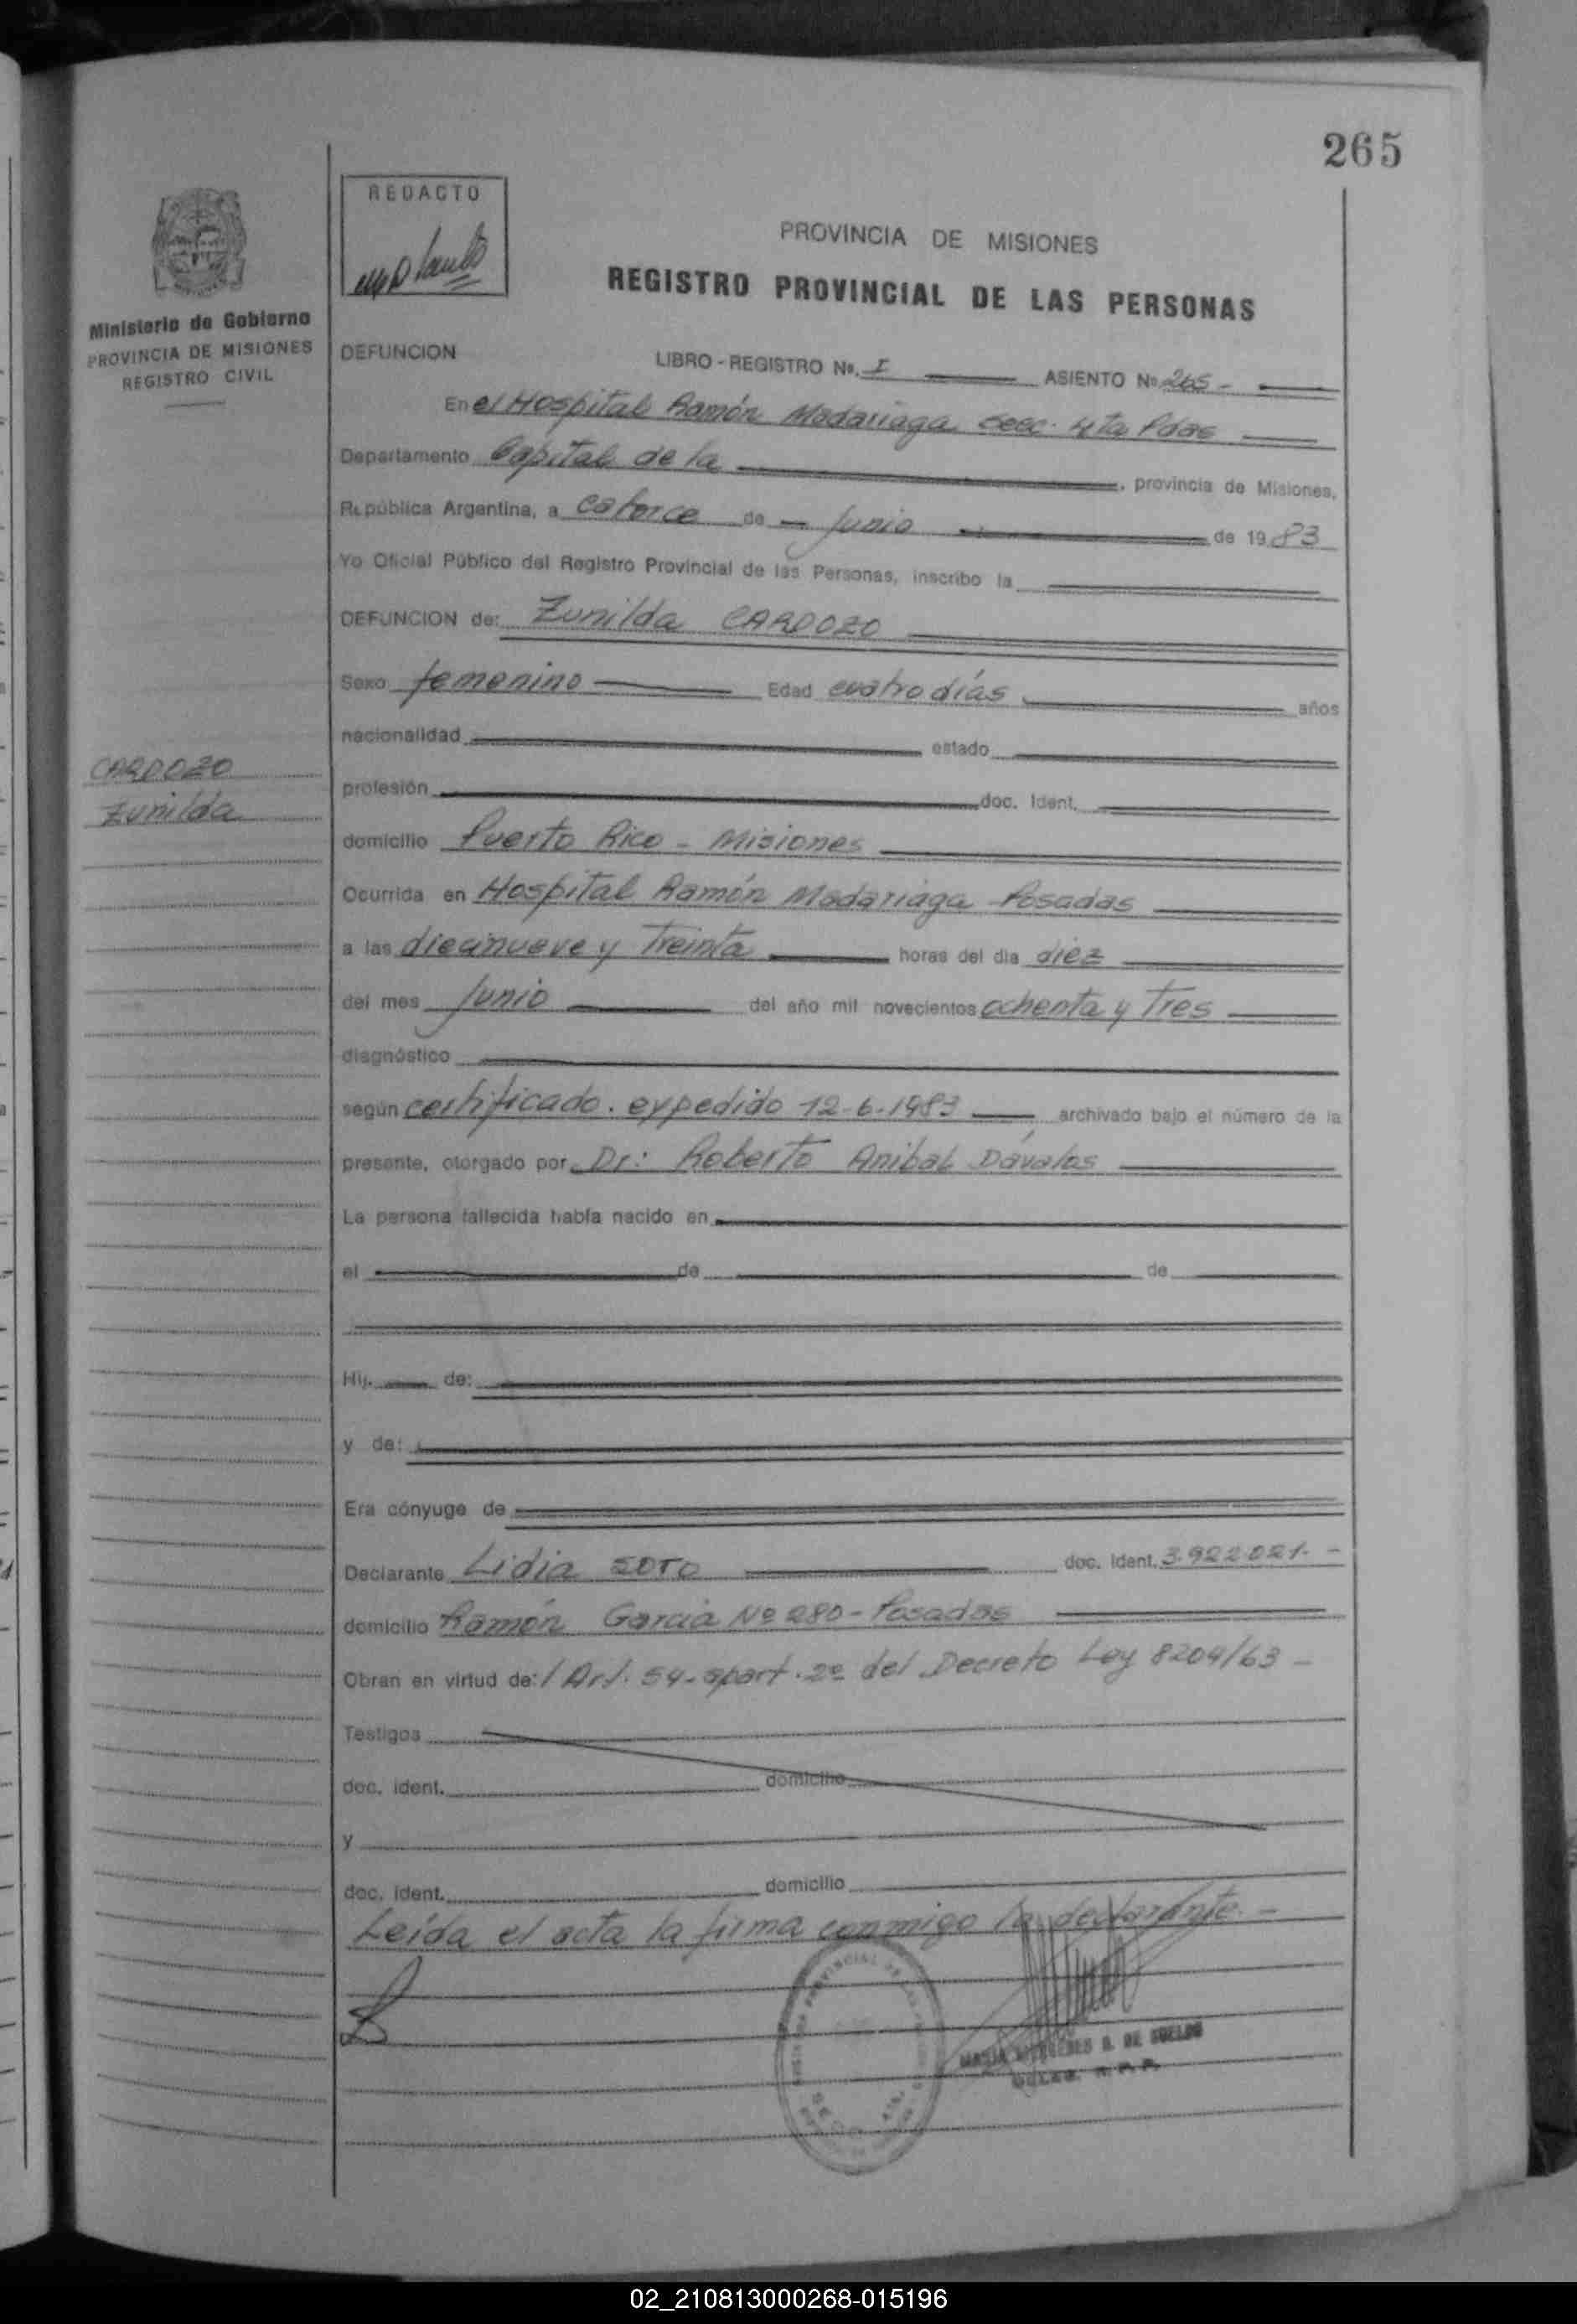 265
REDACTO
PROVINCIA DE MISIONES
REGISTRO PROVINCIAL DE LAS PERSONAS
Ministerio de Gobierno
PROVINCIA DE MISIONES
REGISTRO CIVIL
DEFUNCION LIBRO - REGISTRO No. I ASIENTO No 265 -
En el Hospital Ramón Madariaga secc. 4ta Pdas
Departamento Capital de la , provincia de Misiones,
República Argentina, a catorce de junio de 1983
Yo Oficial Público del Registro Provincial de las Personas, inscribo la
DEFUNCION de: Zunilda CARDOZO
Sexo femenino Edad cuatro días años
nacionalidad estado
CARDOZO
Zunilda
profesión doc. Ident.
domicilio Puerto Rico - Misiones
Ocurrida en Hospital Ramón Madariaga - Posadas
a las diecinueve y treinta horas del día diez
del mes junio del año mil novecientos ochenta y tres
diagnóstico
según certificado. expedido 12-6-1983 , archivado bajo el número de la
presente, otorgado por Dr: Roberto Anibal Dávalos
La persona fallecida había nacido en
el de de
Hij. de:
y de:
Era cónyuge de
Declarante Lidia SOTO doc. Ident. 3.922.021. -
domicilio Ramón García Nº 280 - Posadas
Obran en virtud de: / Art. 54 - apart. 2º del Decreto Ley 8204/63 -
Testigos
doc. ident. domicilio
y
doc. ident. domicilio
Leída el acta la firma conmigo la declarante. -
DE
02_210813000268-015196